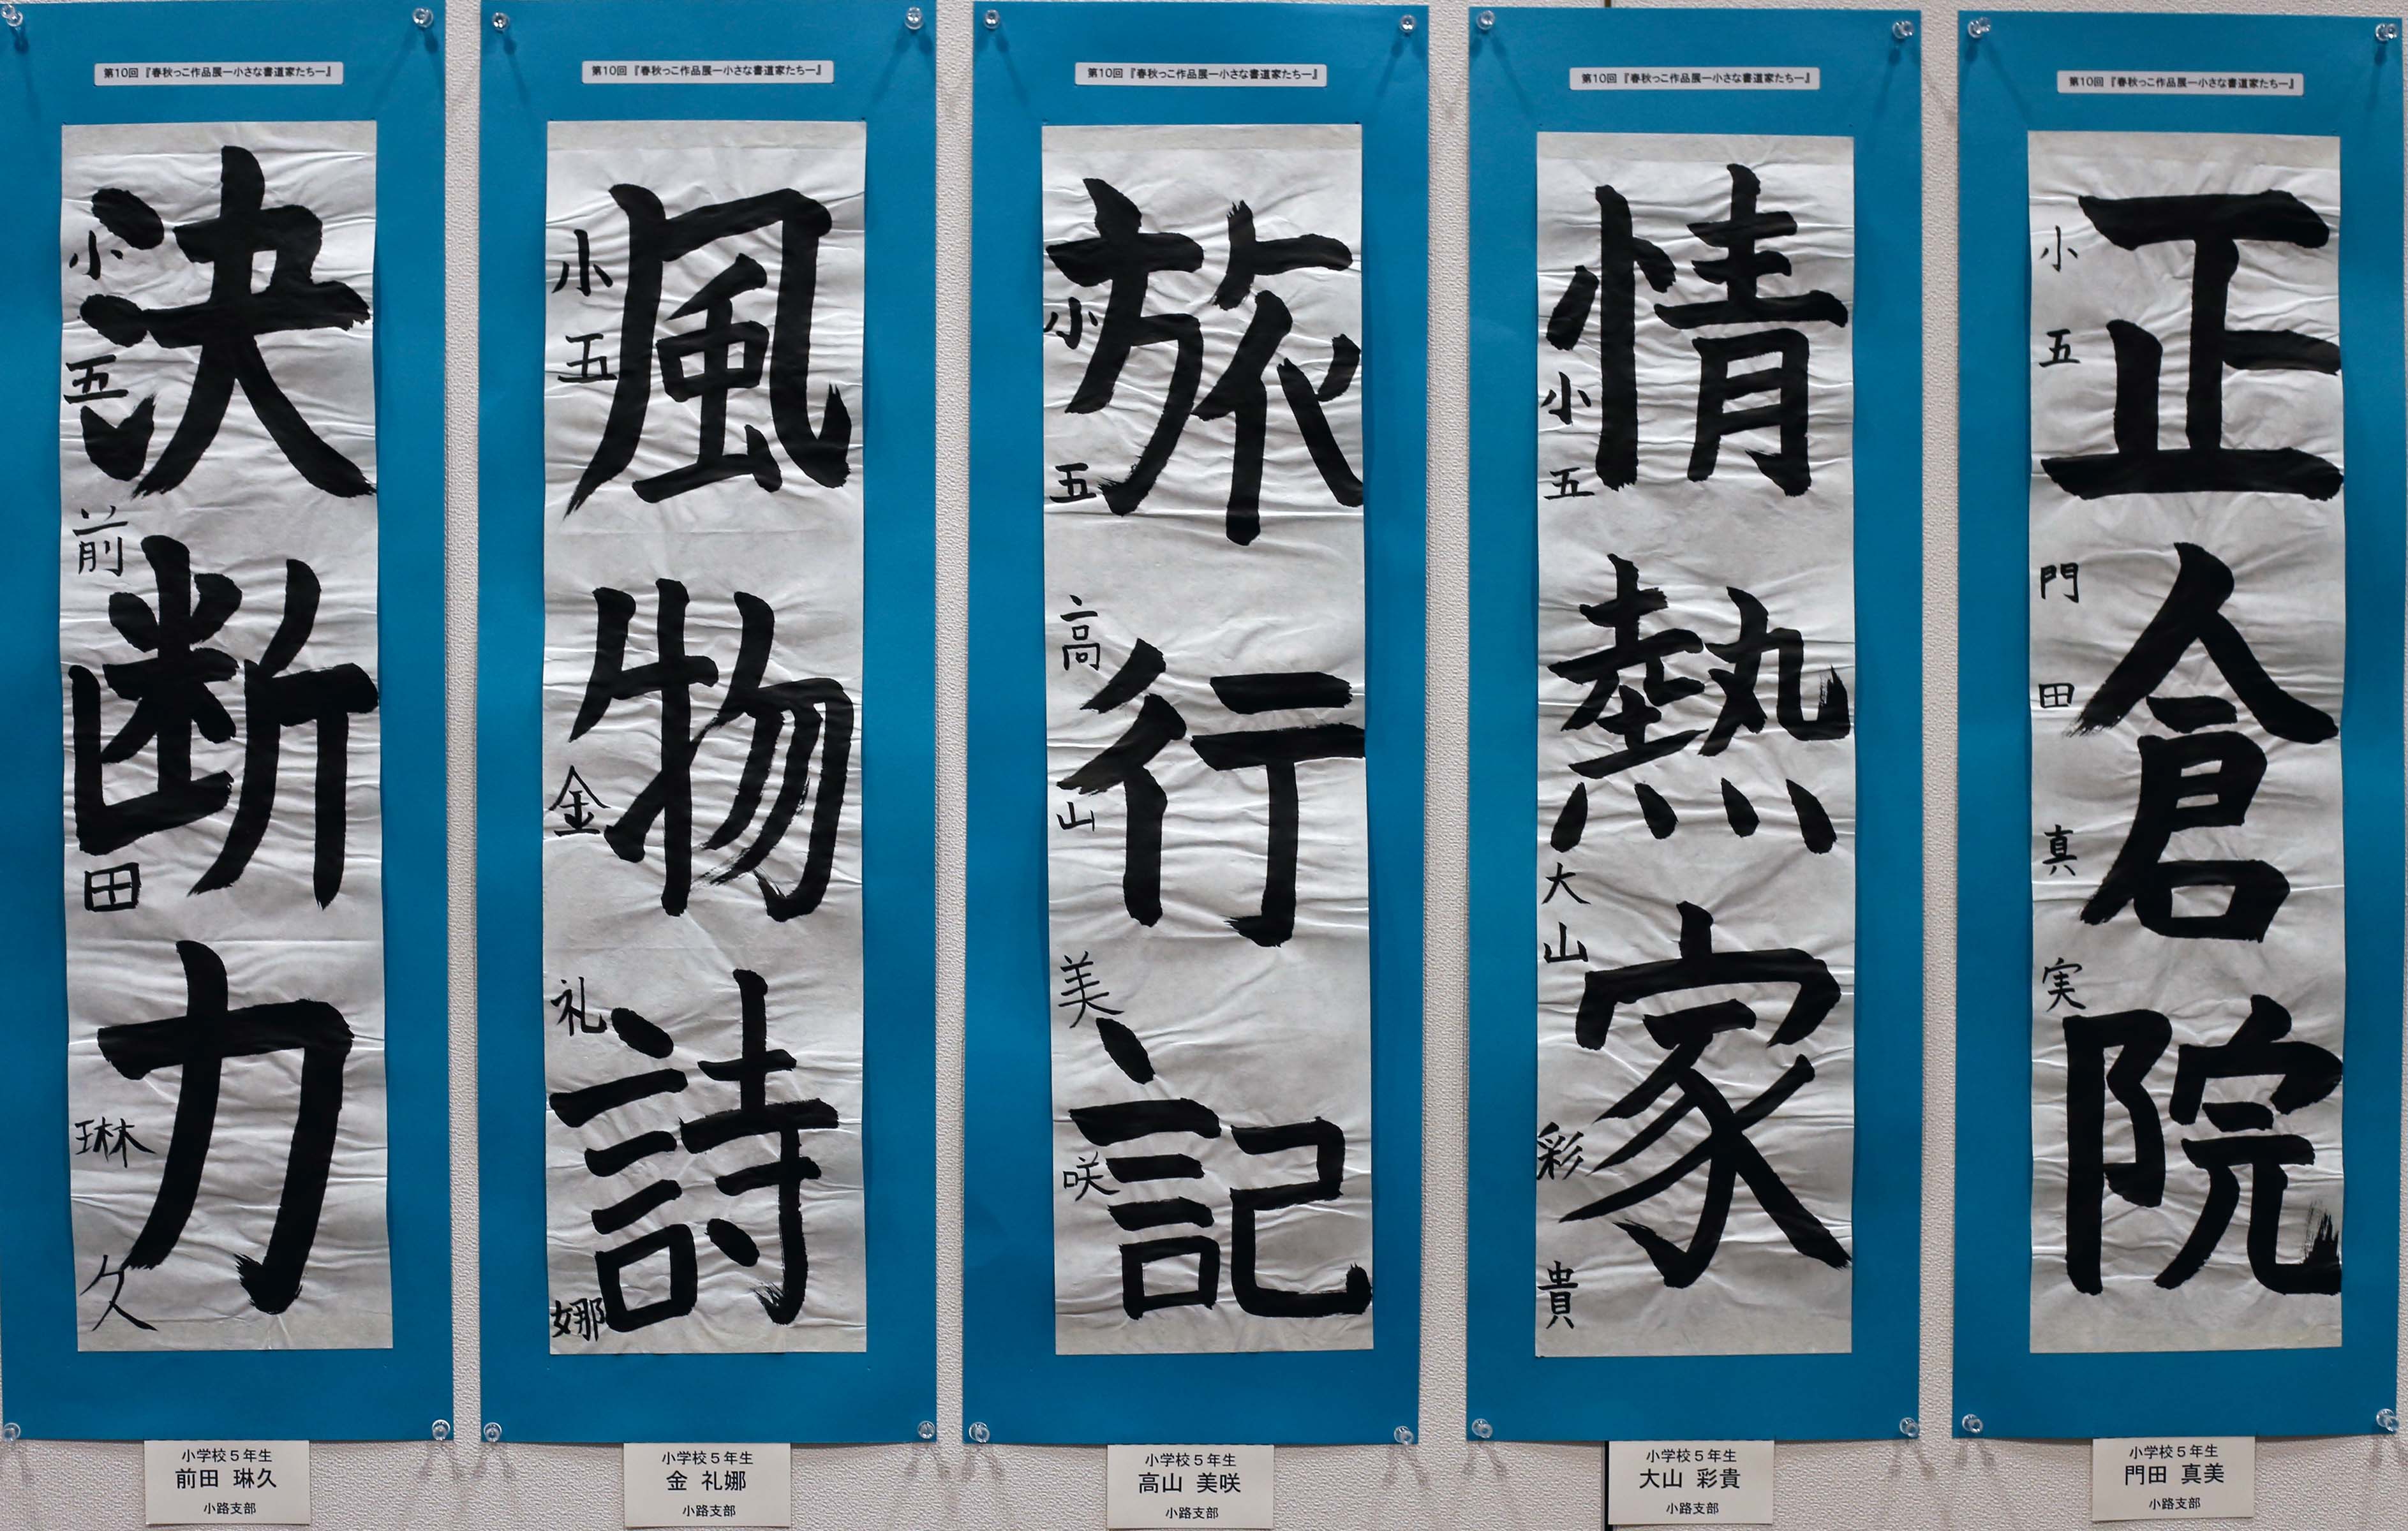 第10回『春秋っこ作品展ー小さな書道家たちー』
決断力
小五 前田琳久
小学校５年生
前田 琳久
小路支部
第10回『春秋っこ作品展ー小さな書道家たちー』
風物詩
小五 金礼娜
小学校５年生
金 礼娜
小路支部
第10回『春秋っこ作品展ー小さな書道家たちー』
旅行記
小五 高山美咲
小学校５年生
高山 美咲
小路支部
第10回『春秋っこ作品展ー小さな書道家たちー』
情熱家
小五 大山彩貴
小学校５年生
大山 彩貴
小路支部
第10回『春秋っこ作品展ー小さな書道家たちー』
正倉院
小五 門田真実
小学校５年生
門田 真美
小路支部